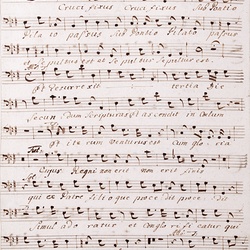 Crucifixus Crucifixus Sub Pontio
Pilato passus Sub Pontio Pilato passus
et Sepultus est et Sepultus est.
Et resurrexit tertia Die
Secundum Scripturas Et ascendit in Celum
Et iterum Venturus est Cum gloria
Cujus Regni non erit non erit finis
qui ex Patre Filioque procedit
Simul adoratur et Conglorificatur qui